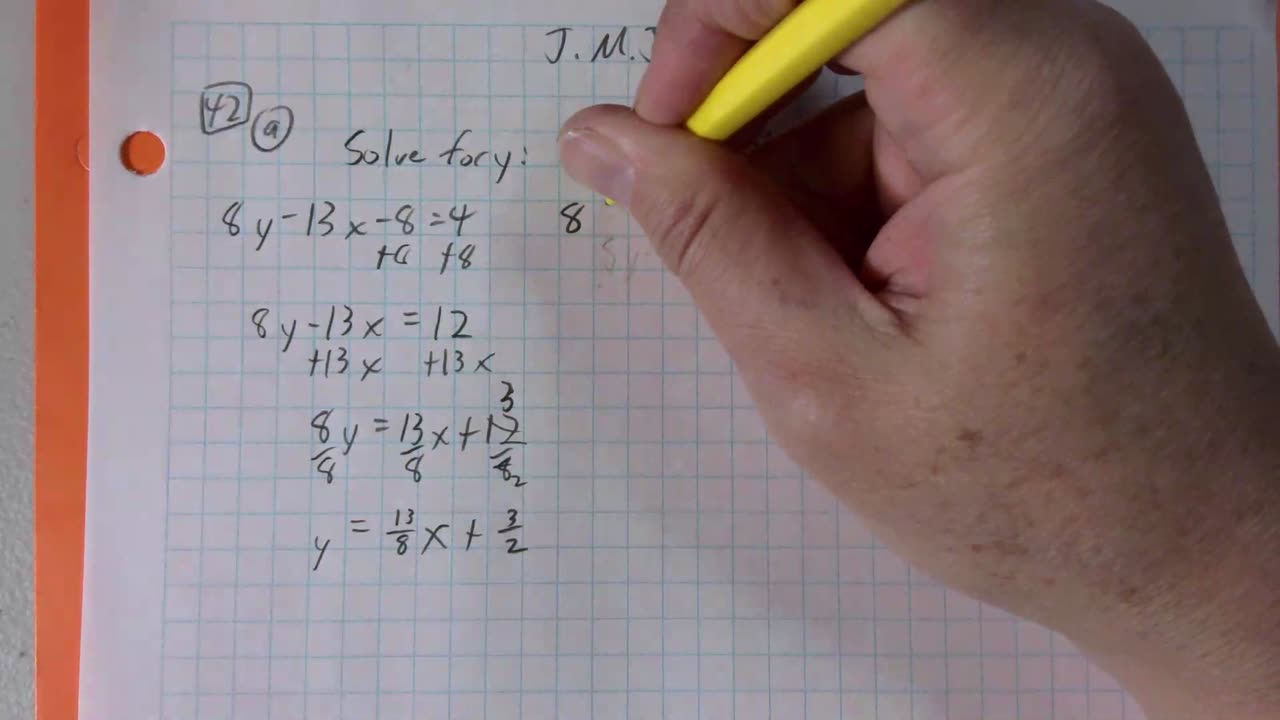 J.M.J
42 a
Solve for y:
8y-13x-8=4
+8 +8
8y-13x=12
+13x +13x
3
8y=13x+12
8 8 82
y = 13/8 x + 3/2
8